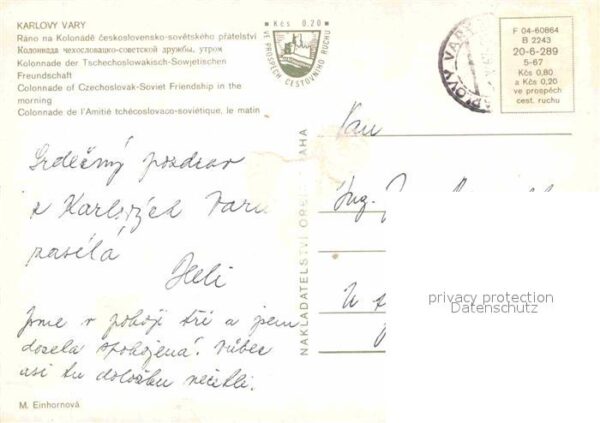 KARLOVY VARY
Ráno na Kolonádě československo-sovětského přátelství
Колоннада чехословацко-советской дружбы, утром
Kolonnade der Tschechoslowakisch-Sowjetischen
Freundschaft
Colonnade of Czechoslovak-Soviet Friendship in the
morning
Colonnade de l'Amitié tchécoslovaco-soviétique, le matin
Kčs 0.20
VE PROSPĚCH CESTOVNÍHO RUCHU
VY VARY
F 04-60864
B 2243
20-6-289
5-67
Kčs 0,80
a Kčs 0,20
ve prospěch
cest. ruchu
Srdečný pozdrav
z Karlových Varů
zasílá
Heli
Jsme v pokoji tři a jsem
docela spokojená.
asi tu
NAKLADATELSTVÍ
Pan
Ing.
U
privacy protection
Datenschutz
M. Einhornová